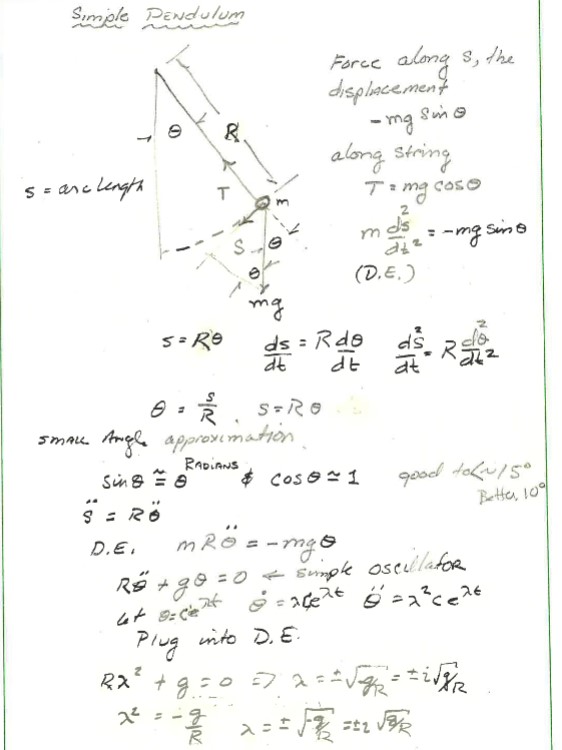 Simple Pendulum
Force along s, the
displacement
-mg sin θ
along string
T = mg cos θ
m d²s/dt² = -mg sin θ
(D.E.)
θ
R
s = arc length
T
m
S
θ
θ
mg
s = Rθ ds/dt = R dθ/dt d²s/dt² = R d²θ/dt²
θ = s/R . s = Rθ
small Angle approximation
Sin θ ≅ θ RADIANS & cos θ ≃ 1 good to <~15°
Better, 10°
s̈ = Rθ̈
D.E. mRθ̈ = -mgθ
Rθ̈ + gθ = 0 ← simple oscillator
let θ = Ce^λt θ̇ = λCe^λt θ̈ = λ²ce^λt
Plug into D.E.
Rλ² + g = 0 => λ = ±√-g/R = ±i√g/R
λ² = -g/R λ = ±√-g/R = ±i√g/R